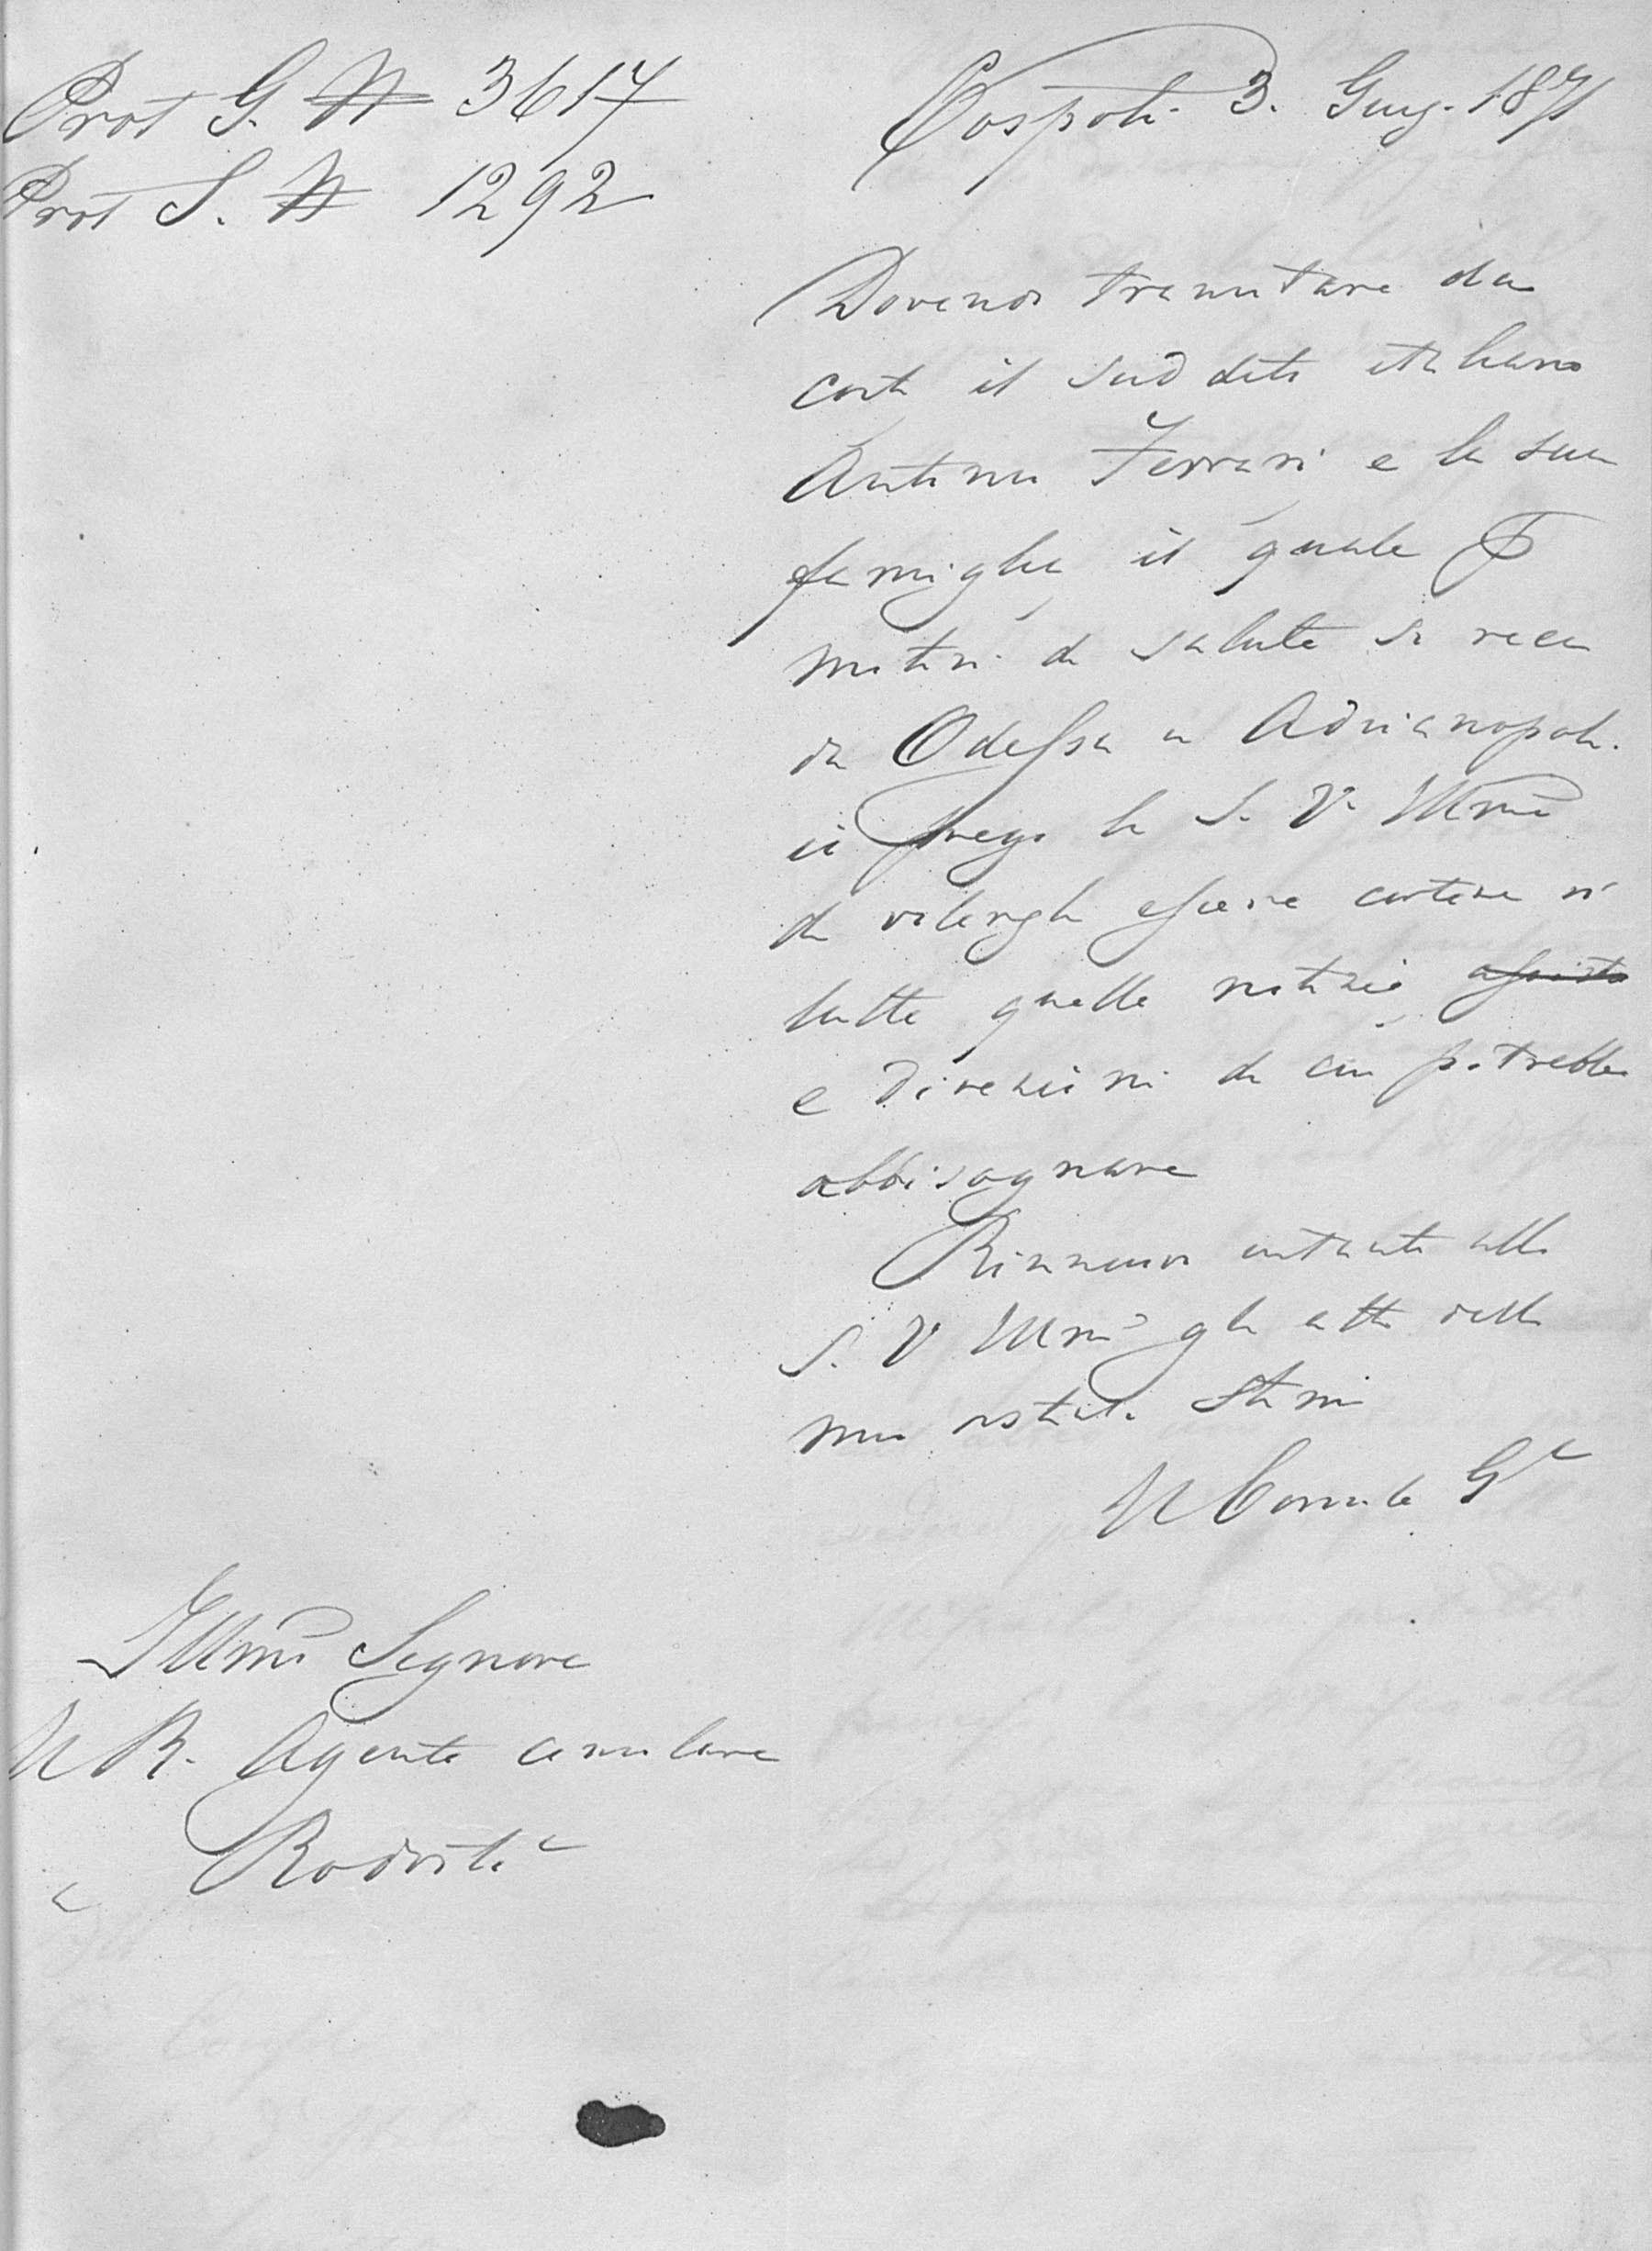 Prot G. N 3617
Prot S. N 1292
Cospoli 3. Giug. 1871
Dovendo transitare da
costà il suddito italiano
Antonio Ferrari e la sua
famiglia, il quale p
motivi di salute si reca
da Odessa a Adrianopoli.
io prego la S. V. Illma
di volergli essere cortese di
tutte quelle notizie
e direzioni di cui potrebbe
abbisognare
Rinnovo intanto alla
S. V. Illma gli atti della
mia stima
Il Console Gle
Illmo Signore
Il R. Agente consolare
a Rodosto